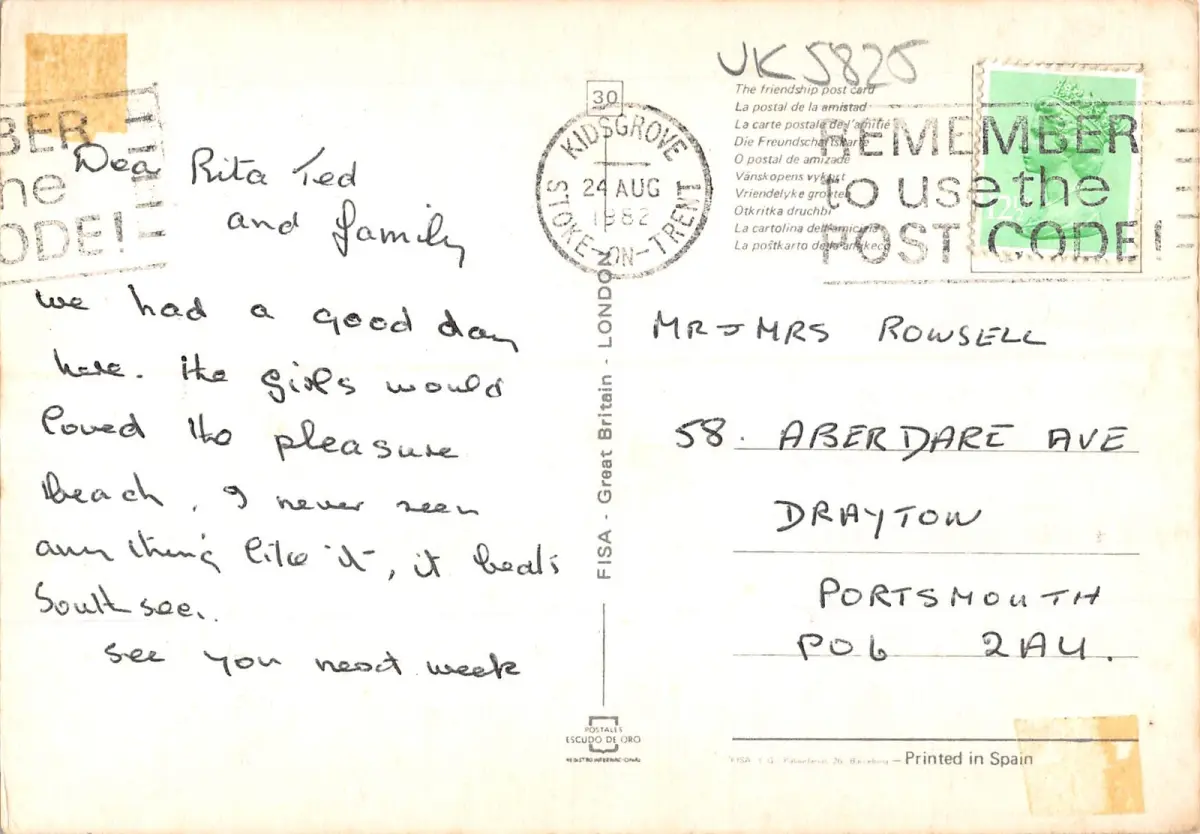 UK5825
The friendship post card
La postal de la amistad
La carte postale de l'amitié
Die Freundschaftskarte
O postal de amizade
Vänskopens vykort
Vriendelyke groeten
Otkritka druchbi
La cartolina dell'amicizia
La poŝtkarto de la amikeco
30
KIDSGROVE
24 AUG
1982
STOKE-ON-TRENT
REMEMBER
to use the
POST CODE!
12½
BER
he
ODE!
Dea Rita Ted
and family
we had a good day
here. the girls would
loved the pleasure
Beach, I never seen
any thing like it, it beats
South see.
see you next week
FISA - Great Britain - LONDON
MR & MRS ROWSELL
58. ABERDARE AVE
DRAYTON
PORTSMOUTH
PO6 2AU.
POSTALES
ESCUDO DE ORO
REGISTRO INTERNACIONAL
Printed in Spain